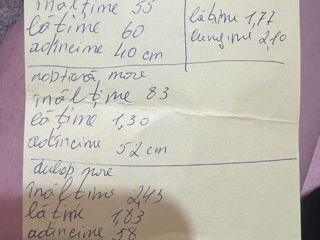 înălțime 55
lățime 60
adîncime 40 cm
lățime 1,77
lungime 210
noptieră mare
înălțime 83
lățime 1,30
adîncime
52 cm
dulap mare
înălțime 2,43
lățime 1,83
adîncime 58